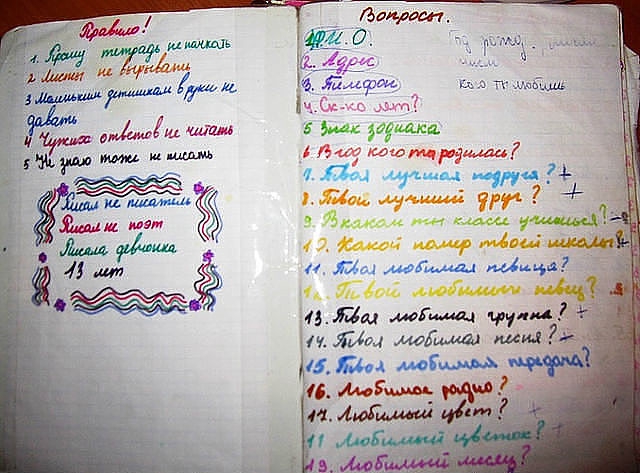 Правило!
1. Прошу тетрадь не пачкать
2 Листы не вырывать
3 Маленьким детишкам в руки не
давать
4 Чужих ответов не читать
5 Не знаю тоже не писать
Писал не писатель
Писал не поэт
Писала девчонка
13 лет
Вопросы.
1 Ф.И.О.
2. Адрес
3. Телефон
4. Ск-ко лет?
5 Знак зодиака
6 В год кого ты родилась?
7. Твоя лучшая подруга? +
8. Твой лучший друг? +
9. В каком ты классе учишься?
10. Какой номер твоей школы? +
11. Твоя любимая певица?
12. Твой любимый певец?
13. Твоя любимая группа? +
14. Твоя любимая песня?
15. Твоя любимая передача?
16. Любимое радио?
17. Любимый цвет? +
11 Любимый цветок? +
19. Любимый месяц?
Год рожд.
кого ты любишь